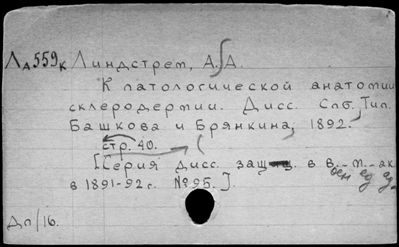 Ла559к Линдстрем, А. А.
К патологической анатомии
склеродермии. Дисс. Спб. Тип.
Башкова и Брянкина, 1892.
стр. 40.
[Серия дисс. защ. в в.-м.-ак.
в 1891-92 г. № 95.].
Дп/16.